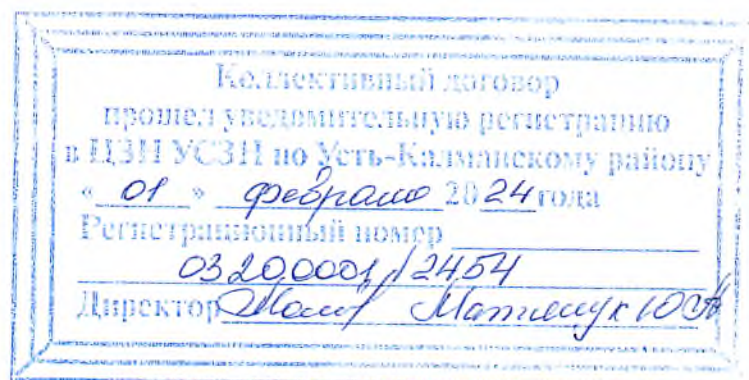 Коллективный договор
прошел уведомительную регистрацию
в ЦЗН УСЗН по Усть-Калманскому району
« 01 » февраля 2024 года
Регистрационный номер
03200001/2454
Директор